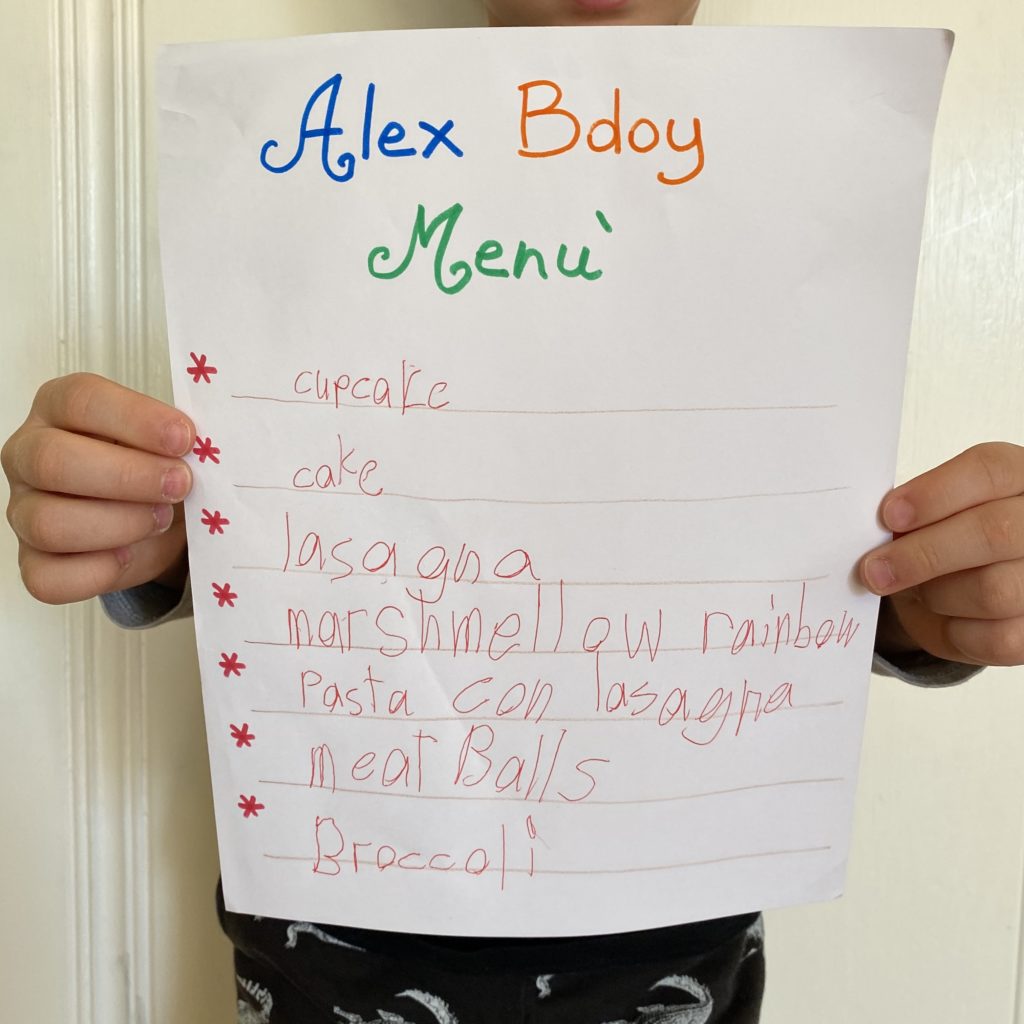 Alex Bdoy
Menù
* cupcake
* cake
* lasagna
* marshmellow rainbow
* Pasta con lasagna
* meat Balls
* Broccoli